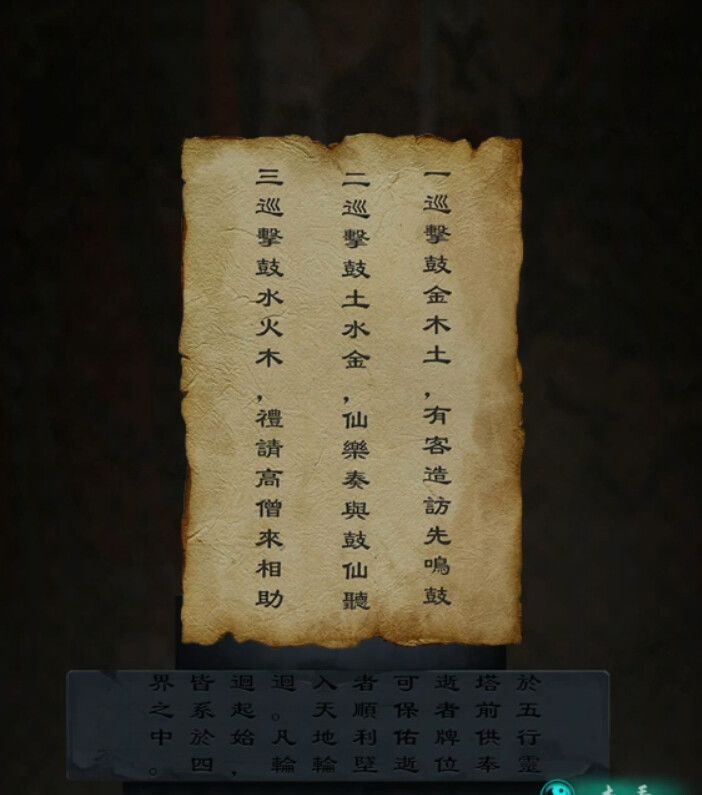 一巡擊鼓金木土，有客造訪先鳴鼓
二巡擊鼓土水金，仙樂奏與鼓仙聽
三巡擊鼓水火木，禮請高僧來相助
於五行靈
塔前供奉
逝者牌位
可保佑逝
者順利墜
入天地輪
迴。凡輪
迴起始，
皆系於四
界之中。